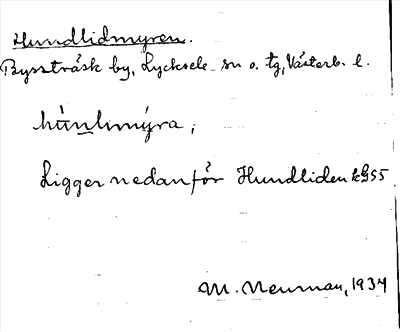 Hundlidmyren.
Bysträsk by, Lycksele sn o. tg, Västerb. l.
hùnlmýra;
Ligger nedanför Hundliden
M. Neuman, 1934